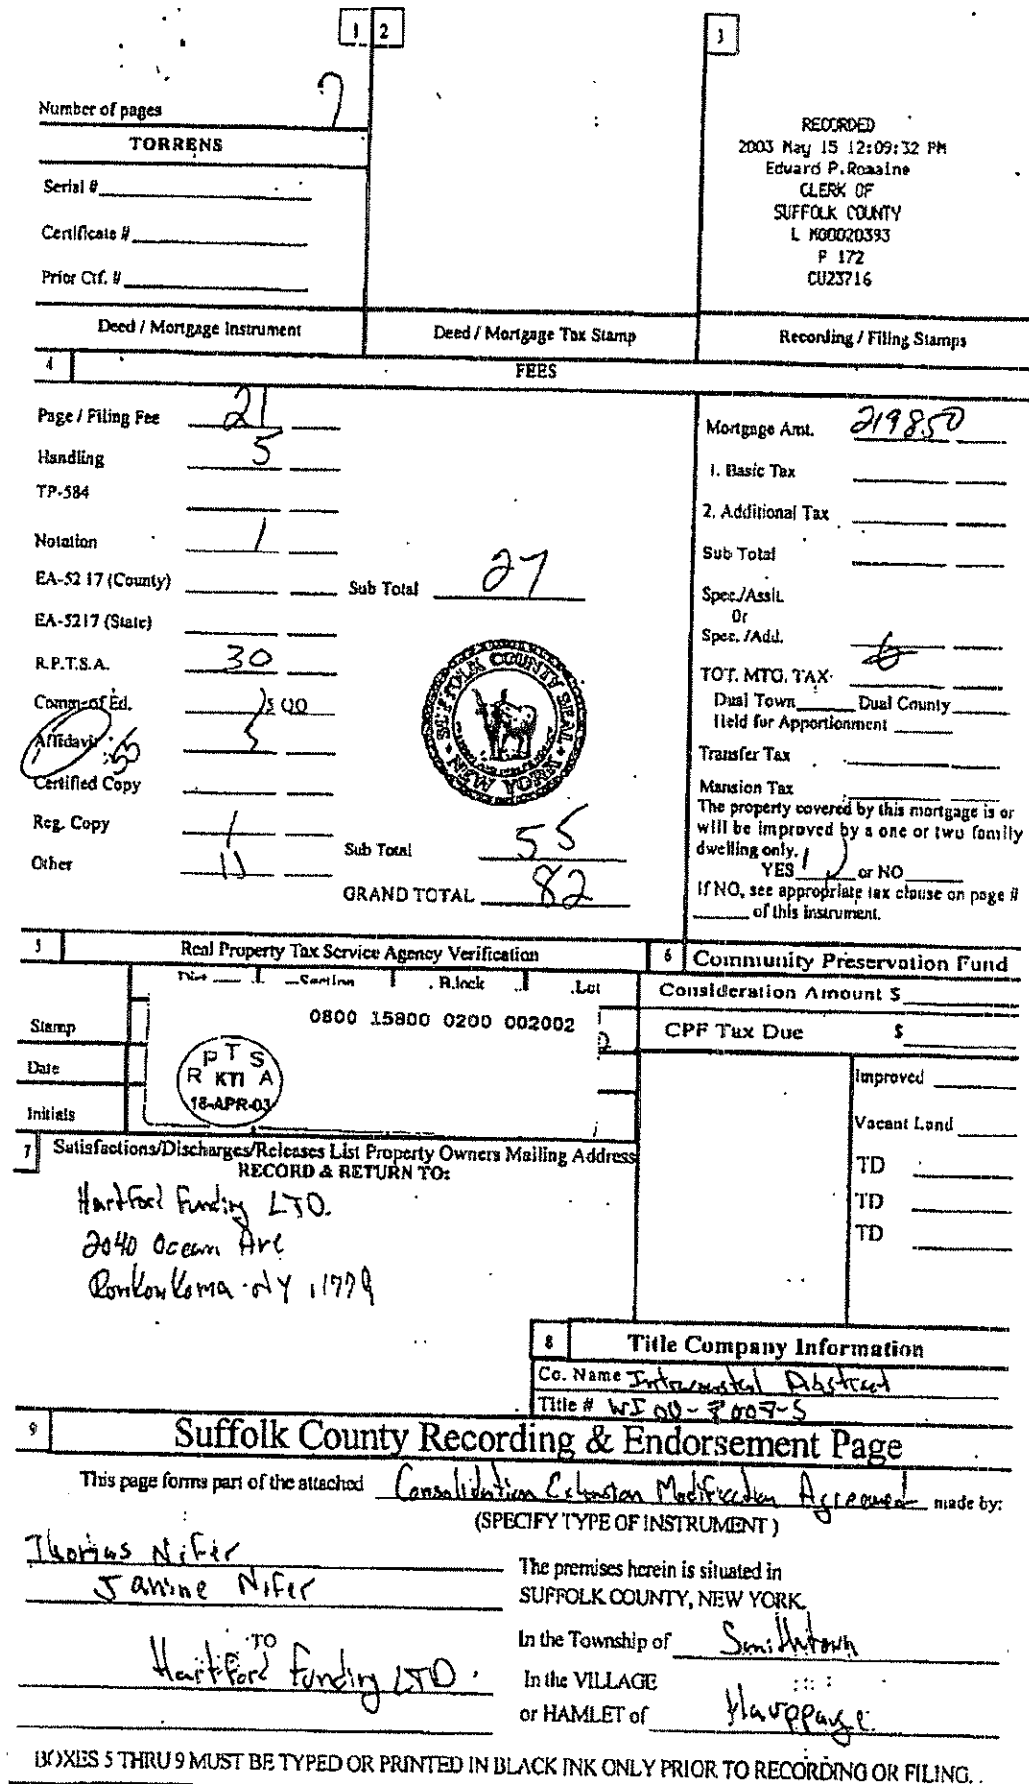 1 2 3
Number of pages 7
TORRENS
Serial #
Certificate #
Prior Ctf. #
RECORDED
2003 May 15 12:09:32 PM
Edward P.Romaine
CLERK OF
SUFFOLK COUNTY
L M00020393
P 172
CU23716
Deed / Mortgage Instrument
Deed / Mortgage Tax Stamp
Recording / Filing Stamps
4 FEES
Page / Filing Fee 21
Handling 5
TP-584
Notation 1
EA-52 17 (County)
Sub Total 27
EA-5217 (State)
R.P.T.S.A. 30
Comm. of Ed. 5 00
Affidavit
Certified Copy
Reg. Copy
Other
SUFFOLK COUNTY SEAL
NEW YORK
Sub Total 55
GRAND TOTAL 82
Mortgage Amt. 219850
1. Basic Tax
2. Additional Tax
Sub Total
Spec./Assit.
Or
Spec. /Add.
TOT. MTG. TAX
Dual Town Dual County
Held for Apportionment
Transfer Tax
Mansion Tax
The property covered by this mortgage is or
will be improved by a one or two family
dwelling only.
YES or NO
If NO, see appropriate tax clause on page #
of this instrument.
5 Real Property Tax Service Agency Verification
Dist Section Block Lot
Stamp
0800 15800 0200 002002
Date
Initials
R P T S A
KTI
18-APR-03
6 Community Preservation Fund
Consideration Amount $
CPF Tax Due $
Improved
Vacant Land
TD
TD
TD
7 Satisfactions/Discharges/Releases List Property Owners Mailing Address
RECORD & RETURN TO:
Hartford Funding LTD.
2040 Ocean Ave
Ronkonkoma NY 11779
8 Title Company Information
Co. Name Intracoastal Abstract
Title #
9 Suffolk County Recording & Endorsement Page
This page forms part of the attached Consolidation Extension Modification Agreement made by:
(SPECIFY TYPE OF INSTRUMENT )
Thomas Nifer
Janine Nifer
The premises herein is situated in
SUFFOLK COUNTY, NEW YORK.
TO
Hartford Funding LTD.
In the Township of Smithtown
In the VILLAGE
or HAMLET of Hauppauge
BOXES 5 THRU 9 MUST BE TYPED OR PRINTED IN BLACK INK ONLY PRIOR TO RECORDING OR FILING.